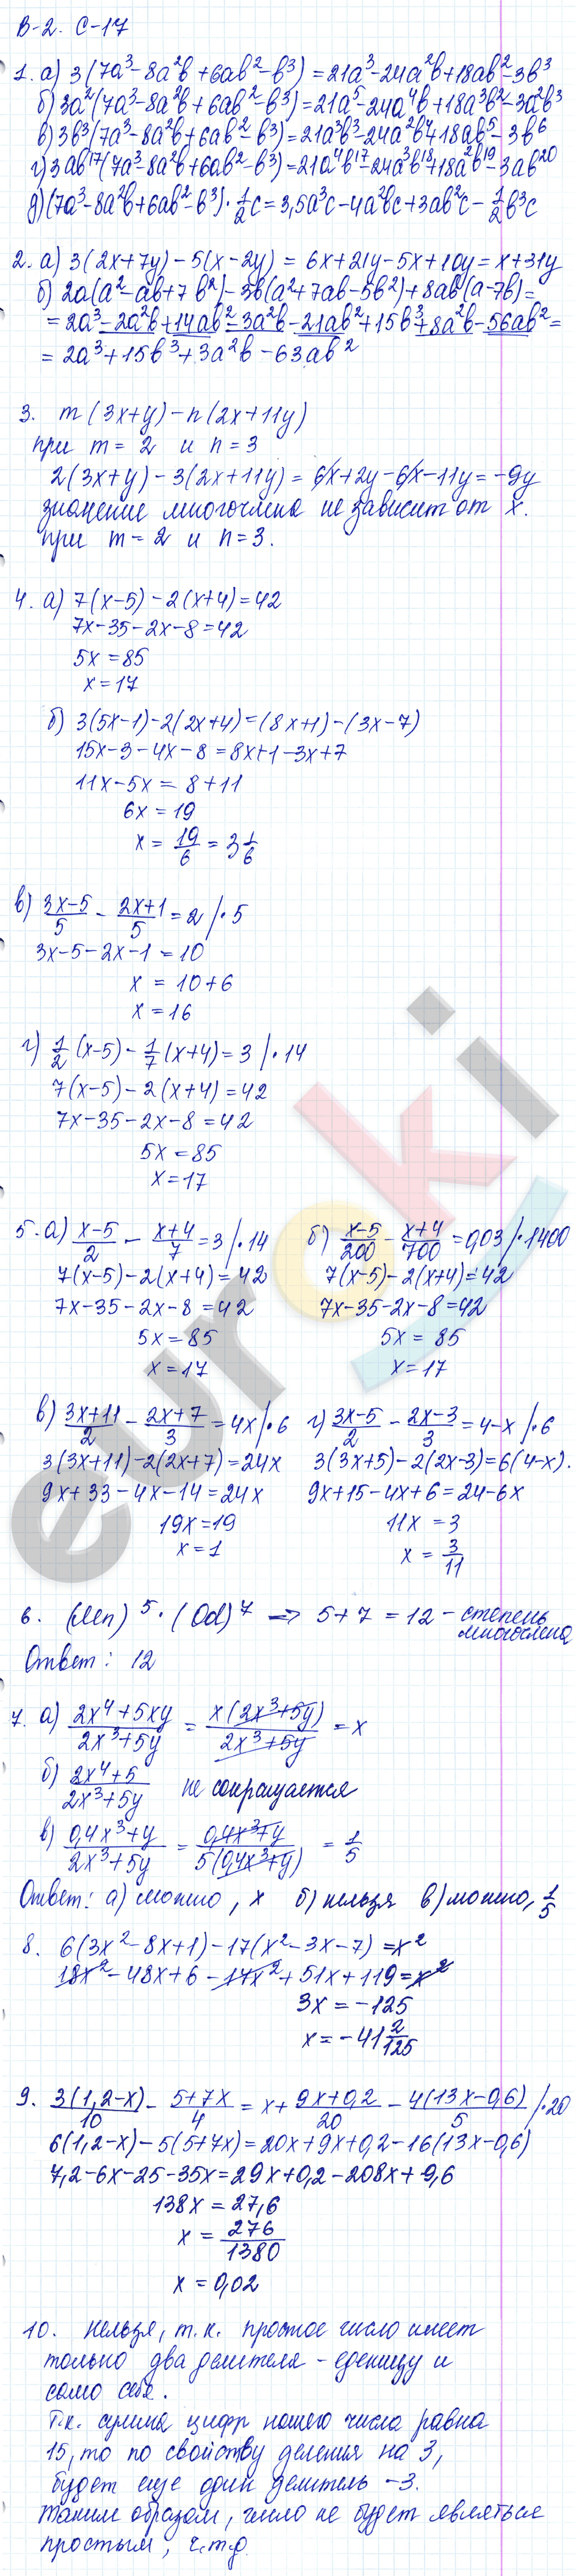 В-2. С-17
1. а) 3(7a³-8a²b+6ab²-b³)=21a³-24a²b+18ab²-3b³
б) 3a²(7a³-8a²b+6ab²-b³)=21a⁵-24a⁴b+18a³b²-3a²b³
в) 3b³(7a³-8a²b+6ab²-b³)=21a³b³-24a²b⁴+18ab⁵-3b⁶
г) 3ab¹⁷(7a³-8a²b+6ab²-b³)=21a⁴b¹⁷-24a³b¹⁸+18a²b¹⁹-3ab²⁰
д) (7a³-8a²b+6ab²-b³)·1/2c=3,5a³c-4a²bc+3ab²c-1/2b³c
2. а) 3(2x+7y)-5(x-2y)=6x+21y-5x+10y=x+31y
б) 2a(a²-ab+7b²)-3b(a²+7ab-5b²)+8ab(a-7b)=
=2a³-2a²b+14ab²-3a²b-21ab²+15b³+8a²b-56ab²=
=2a³+15b³+3a²b-63ab²
3. m(3x+y)-n(2x+11y)
при m=2 и n=3
2(3x+y)-3(2x+11y)=6x+2y-6x-11y=-9y
значение многочлена не зависит от x.
при m=2 и n=3.
4. а) 7(x-5)-2(x+4)=42
7x-35-2x-8=42
5x=85
x=17
б) 3(5x-1)-2(2x+4)=(8x+1)-(3x-7)
15x-3-4x-8=8x+1-3x+7
11x-5x=8+11
6x=19
x=19/6=3 1/6
в) (3x-5)/5-(2x+1)/5=2 /·5
3x-5-2x-1=10
x=10+6
x=16
г) 1/2(x-5)-1/7(x+4)=3 /·14
7(x-5)-2(x+4)=42
7x-35-2x-8=42
5x=85
x=17
5. а) (x-5)/2-(x+4)/7=3 /·14
7(x-5)-2(x+4)=42
7x-35-2x-8=42
5x=85
x=17
б) (x-5)/200-(x+4)/700=0,03 /·1400
7(x-5)-2(x+4)=42
7x-35-2x-8=42
5x=85
x=17
в) (3x+11)/2-(2x+7)/3=4x /·6
3(3x+11)-2(2x+7)=24x
9x+33-4x-14=24x
19x=19
x=1
г) (3x-5)/2-(2x-3)/3=4-x /·6
3(3x+5)-2(2x-3)=6(4-x).
9x+15-4x+6=24-6x
11x=3
x=3/11
6. (Мп)⁵·(Od)⁷ => 5+7=12 - степень
многочлена
Ответ: 12
7. а) (2x⁴+5xy)/(2x³+5y)=x(2x³+5y)/(2x³+5y)=x
б) (2x⁴+5)/(2x³+5y) не сокращается
в) (0,4x³+y)/(2x³+5y)=(0,4x³+y)/(5(0,4x³+y))=1/5
Ответ: а) можно, x б) нельзя в) можно, 1/5
8. 6(3x²-8x+1)-17(x²-3x-7)=x²
18x²-48x+6-17x²+51x+119=x²
3x=-125
x=-41 2/125
9. 3(1,2-x)/10-(5+7x)/4=x+(9x+0,2)/20-4(13x-0,6)/5 /·20
6(1,2-x)-5(5+7x)=20x+9x+0,2-16(13x-0,6)
7,2-6x-25-35x=29x+0,2-208x+9,6
138x=27,6
x=276/1380
x=0,02
10. Нельзя, т.к. простое число имеет
только два делителя - еденицу и
само себя.
Т.к. сумма цифр нашего числа равна
15, то по свойству деления на 3,
будет еще один делитель -3.
Таким образом, число не будет являться
простым, ч.т.д.
euroki